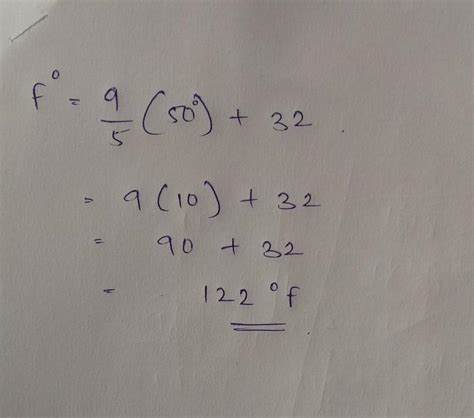 f° = 9/5 (50°) + 32 .
= 9 (10) + 32
= 90 + 32
= 122 °f